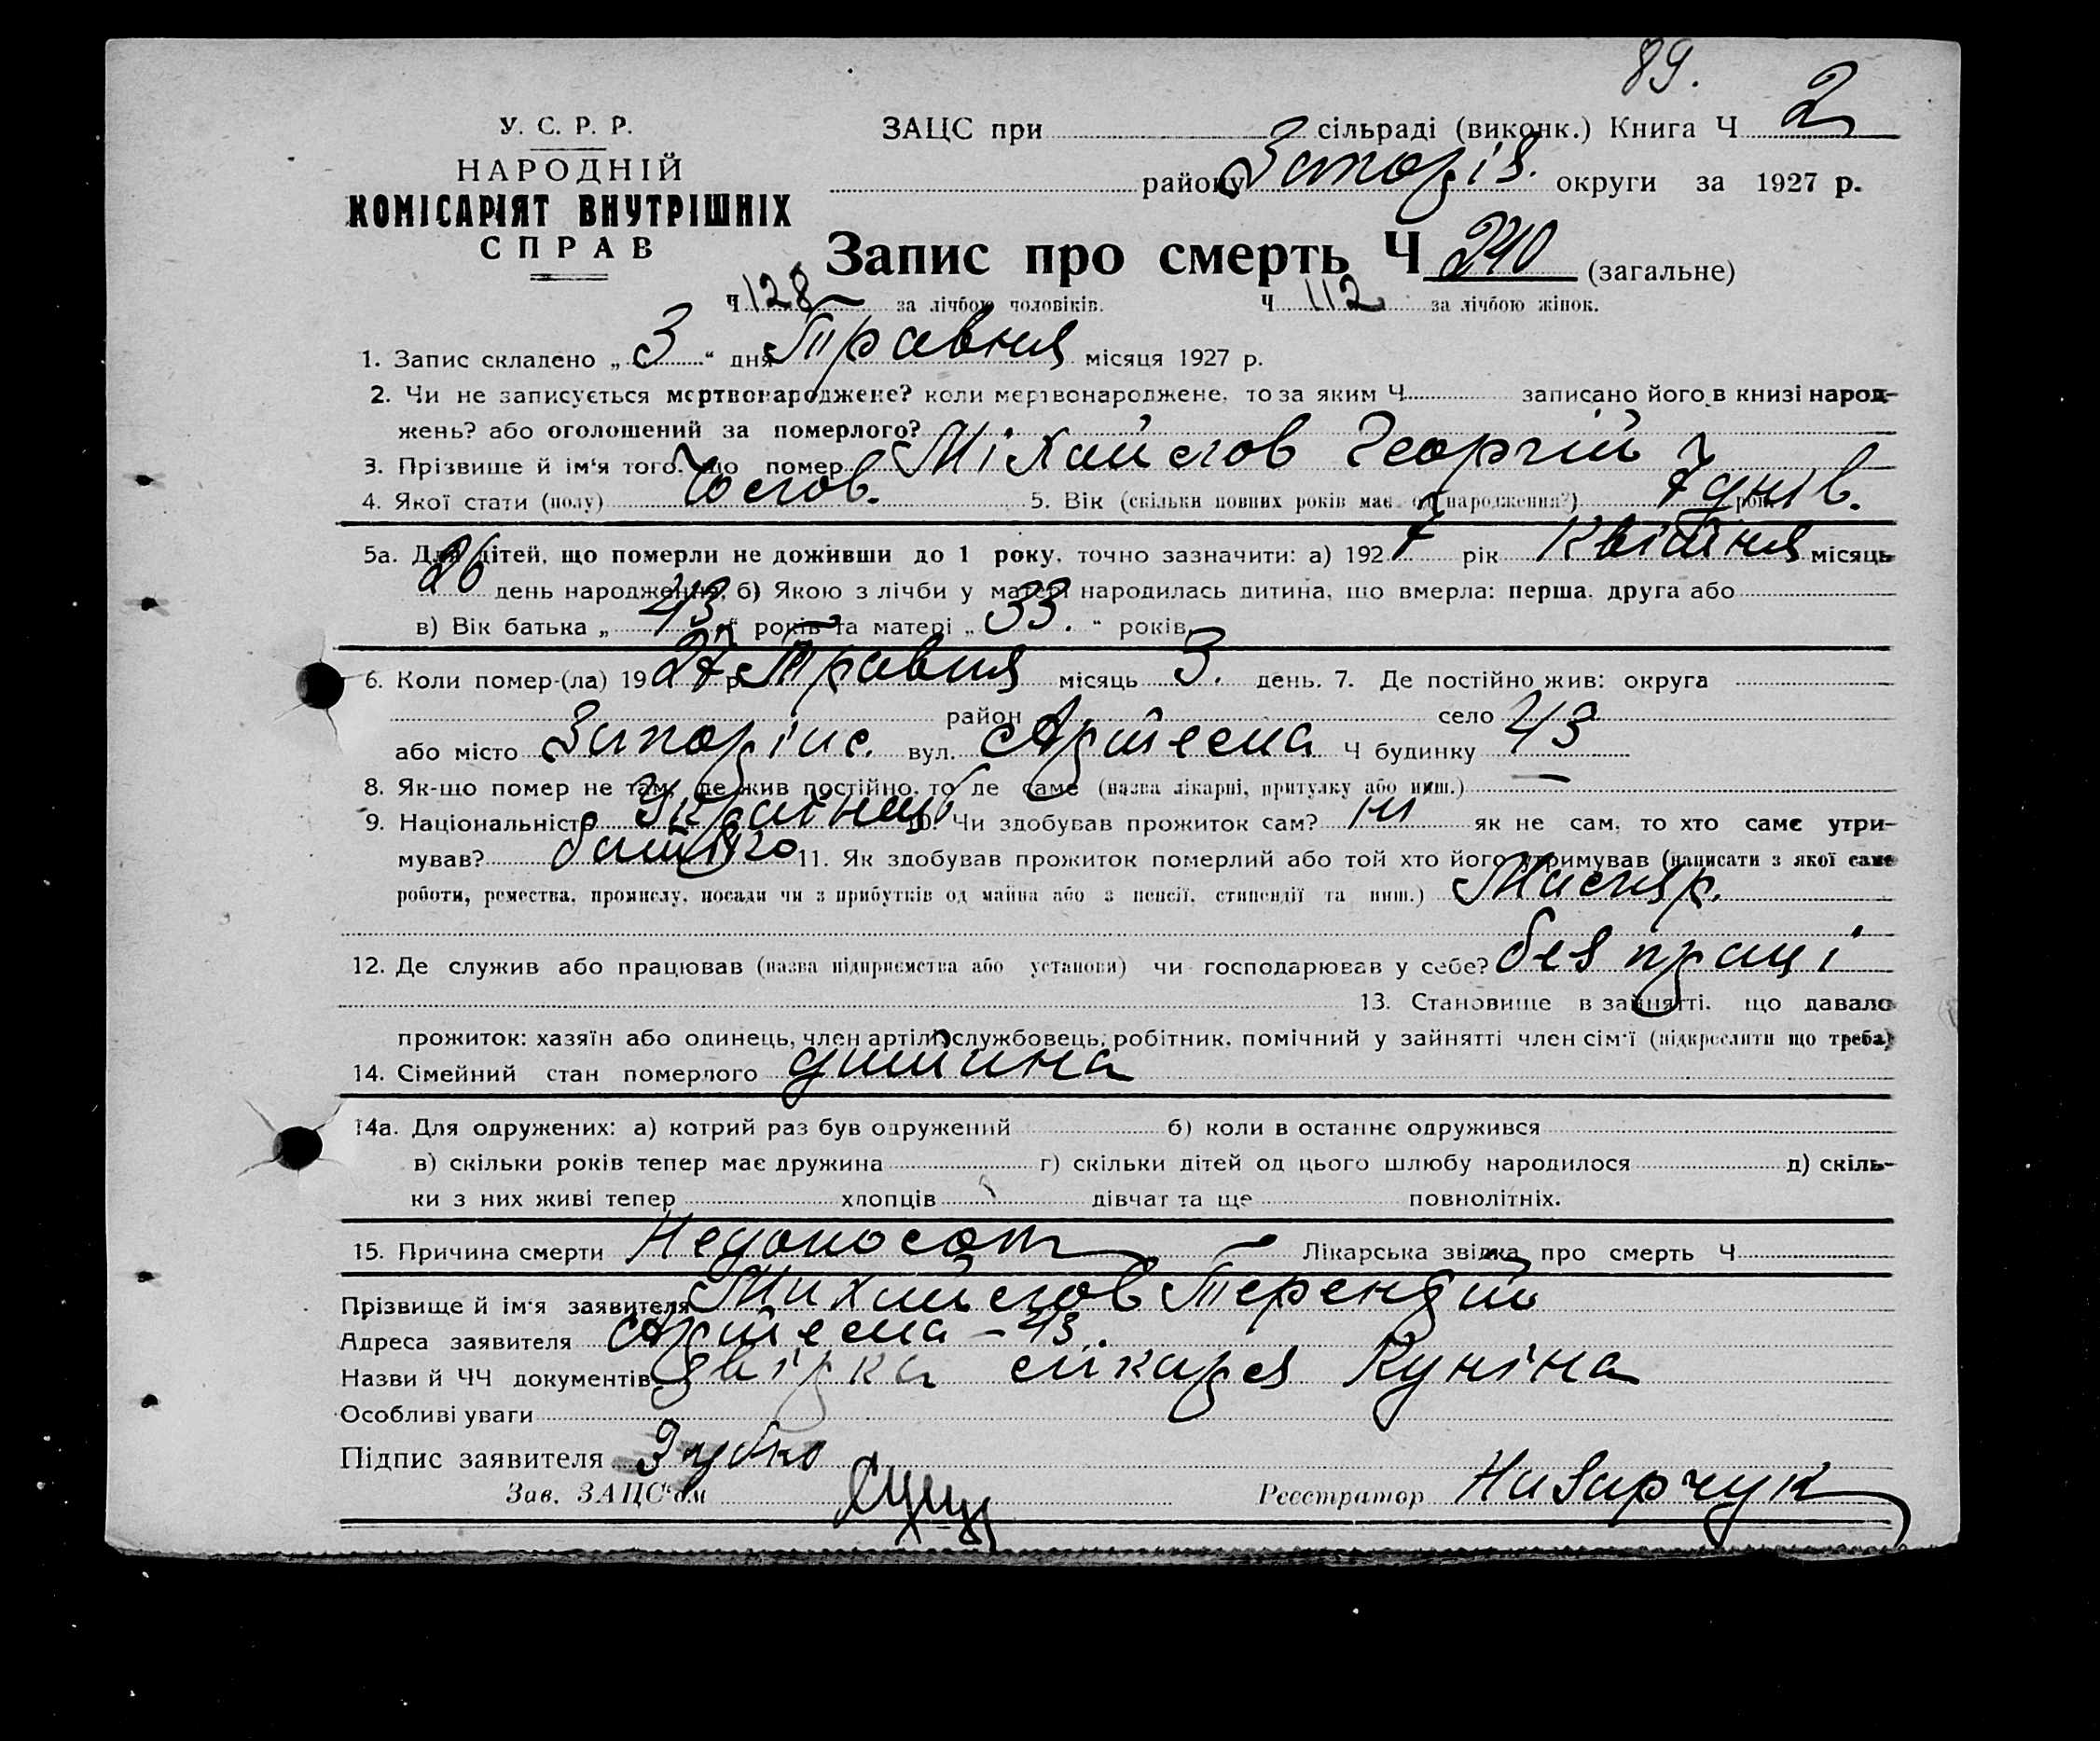 89.
У. С. Р. Р.
НАРОДНІЙ
КОМІСАРІЯТ ВНУТРІШНІХ
СПРАВ
ЗАЦС при сільраді (виконк.) Книга Ч 2
району Запоріз. округи за 1927 р.
Запис про смерть Ч 240 (загальне)
Ч 128 за лічбою чоловіків. Ч 112 за лічбою жінок.
1. Запис складено „ 3 “ дня Травня місяця 1927 р.
2. Чи не записується мертвонароджене? коли мертвонароджене, то за яким Ч записано його в книзі народ-
жень? або оголошений за померлого?
3. Прізвище й ім'я того, що помер Міхайлов Георгій
4. Якої стати (полу) Чолов. 5. Вік (скільки повних років має од народження?) 7 днів. рок.
5а. Для дітей, що померли не доживши до 1 року, точно зазначити: а) 1927 рік Квітня місяць
26 день народження, б) Якою з лічби у матері народилась дитина, що вмерла: перша, друга або
в) Вік батька „ 43 “ років та матері „ 33. “ років.
6. Коли помер-(ла) 1927 р. Травня місяць 3. день. 7. Де постійно жив: округа
район село
або місто Запоріж. вул. Артема Ч будинку 43
8. Як-що помер не там, де жив постійно, то де саме (назва лікарні, притулку або инш.) —
9. Національність Українець 10. Чи здобував прожиток сам? ні як не сам, то хто саме утри-
мував? батько 11. Як здобував прожиток померлий або той хто його утримував (написати з якої саме
роботи, ремества, промислу, посади чи з прибутків од майна або з пенсії, стипендії та инш.) Маляр.
12. Де служив або працював (назва підприємства або установи) чи господарював у себе? без праці
13. Становище в зайнятті, що давало
прожиток: хазяїн або одинець, член артілі, службовець, робітник, помічний у зайнятті член сім'ї (підкреслити що треба)
14. Сімейний стан померлого дитина
14а. Для одружених: а) котрий раз був одружений б) коли в останнє одружився
в) скільки років тепер має дружина г) скільки дітей од цього шлюбу народилося д) скіль-
ки з них живі тепер хлопців дівчат та ще повнолітніх.
15. Причина смерти Недоносот Лікарська звідка про смерть Ч
Прізвище й ім'я заявителя Михайлов Терентій
Адреса заявителя Артема – 43.
Назви й ЧЧ документів Звірка лікаря Куніна
Особливі уваги
Підпис заявителя Зубко
Зав. ЗАЦС'ом
Реєстратор Назарчук